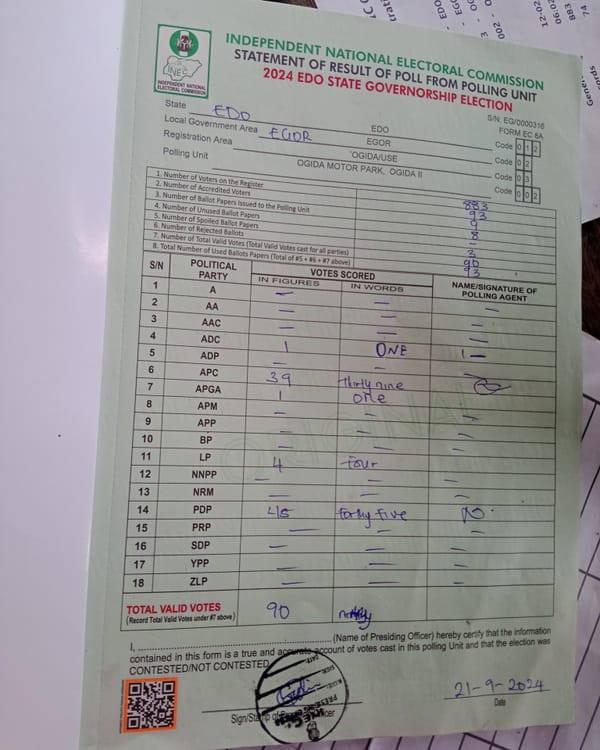 INDEPENDENT NATIONAL ELECTORAL COMMISSION
STATEMENT OF RESULT OF POLL FROM POLLING UNIT
2024 EDO STATE GOVERNORSHIP ELECTION
INEC
INDEPENDENT NATIONAL
ELECTORAL COMMISSION
S/N. EG/0000316
FORM EC 8A
State EDO EDO Code 0 1 2
Local Government Area EGOR EGOR Code 0 2
Registration Area 'OGIDA/USE Code 0 3
Polling Unit OGIDA MOTOR PARK, OGIDA II Code 0 0 2
1. Number of Voters on the Register 883
2. Number of Accredited Voters 93
3. Number of Ballot Papers Issued to the Polling Unit
4. Number of Unused Ballot Papers 8
5. Number of Spoiled Ballot Papers –
6. Number of Rejected Ballots 3
7. Number of Total Valid Votes (Total Valid Votes cast for all parties) 90
8. Total Number of Used Ballots Papers (Total of #5 + #6 + #7 above) 93
S/N POLITICAL PARTY VOTES SCORED NAME/SIGNATURE OF POLLING AGENT
IN FIGURES IN WORDS
1 A — — —
2 AA — — —
3 AAC — — —
4 ADC 1 ONE 1—
5 ADP — — —
6 APC 39 thirty nine
7 APGA 1 one
8 APM — — —
9 APP — — —
10 BP — — —
11 LP 4 four —
12 NNPP — — —
13 NRM — — —
14 PDP 45 forty five
15 PRP — — —
16 SDP — — —
17 YPP — — —
18 ZLP — — —
TOTAL VALID VOTES 90
(Record Total Valid Votes under #7 above)
I, ........ (Name of Presiding Officer) hereby certify that the information
contained in this form is a true and accurate account of votes cast in this polling Unit and that the election was
CONTESTED/NOT CONTESTED.
21-9-2024
Sign/Stamp of Presiding Officer Date